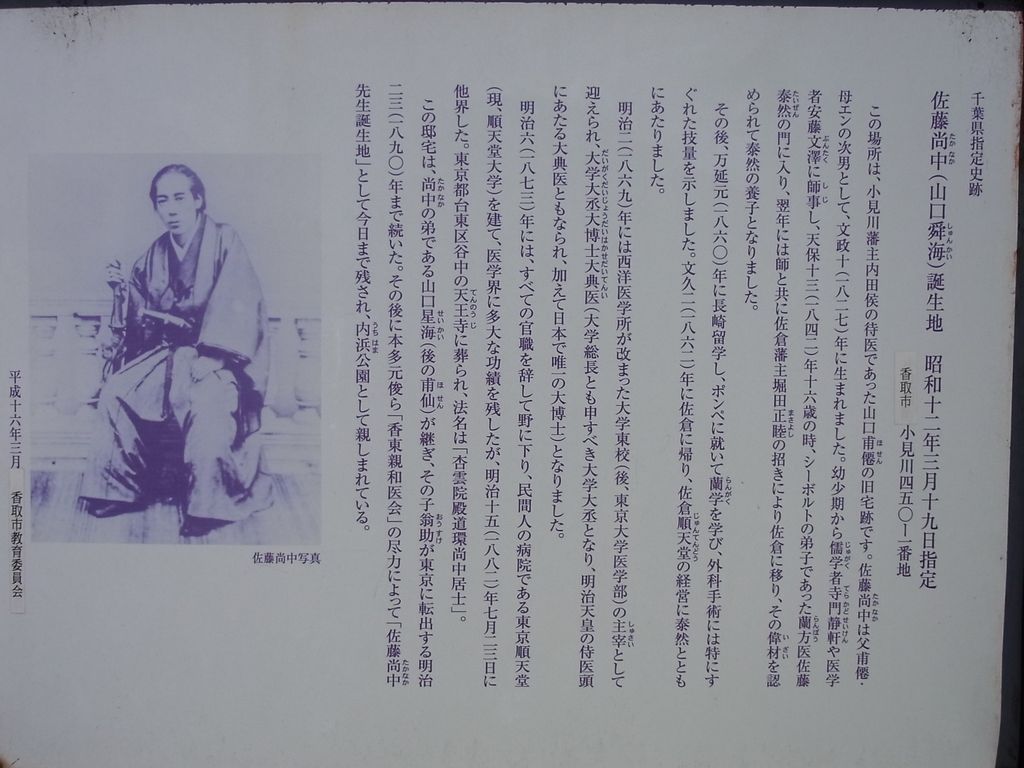 千葉県指定史跡
佐藤尚中(山口舜海)誕生地　昭和十二年三月十九日指定
香取市　小見川四五〇ー一番地
この場所は、小見川藩主内田侯の侍医であった山口甫僊の旧宅跡です。佐藤尚中は父甫僊・
母エンの次男として、文政十(一八二七)年に生まれました。幼少期から儒学者寺門静軒や医学
者安藤文澤に師事し、天保十三(一八四二)年十六歳の時、シーボルトの弟子であった蘭方医佐藤
泰然の門に入り、翌年には師と共に佐倉藩主堀田正睦の招きにより佐倉に移り、その偉材を認
められて泰然の養子となりました。
その後、万延元(一八六〇)年に長崎留学し、ポンペに就いて蘭学を学び、外科手術には特にす
ぐれた技量を示しました。文久二(一八六二)年に佐倉に帰り、佐倉順天堂の経営に泰然ととも
にあたりました。
明治二(一八六九)年には西洋医学所が改まった大学東校(後、東京大学医学部)の主宰として
迎えられ、大学大丞大博士大典医(大学総長とも申すべき大学大丞となり、明治天皇の侍医頭
にあたる大典医ともなられ、加えて日本で唯一の大博士)となりました。
明治六(一八七三)年には、すべての官職を辞して野に下り、民間人の病院である東京順天堂
(現、順天堂大学)を建て、医学界に多大な功績を残したが、明治十五(一八八二)年七月二三日に
他界した。東京都台東区谷中の天王寺に葬られ、法名は「杏雲院殿道環尚中居士」。
この邸宅は、尚中の弟である山口星海(後の甫仙)が継ぎ、その子翁助が東京に転出する明治
二三(一八九〇)年まで続いた。その後に本多元俊ら「香東親和医会」の尽力によって「佐藤尚中
先生誕生地」として今日まで残され、内浜公園として親しまれている。
佐藤尚中写真
平成十六年三月　香取市教育委員会